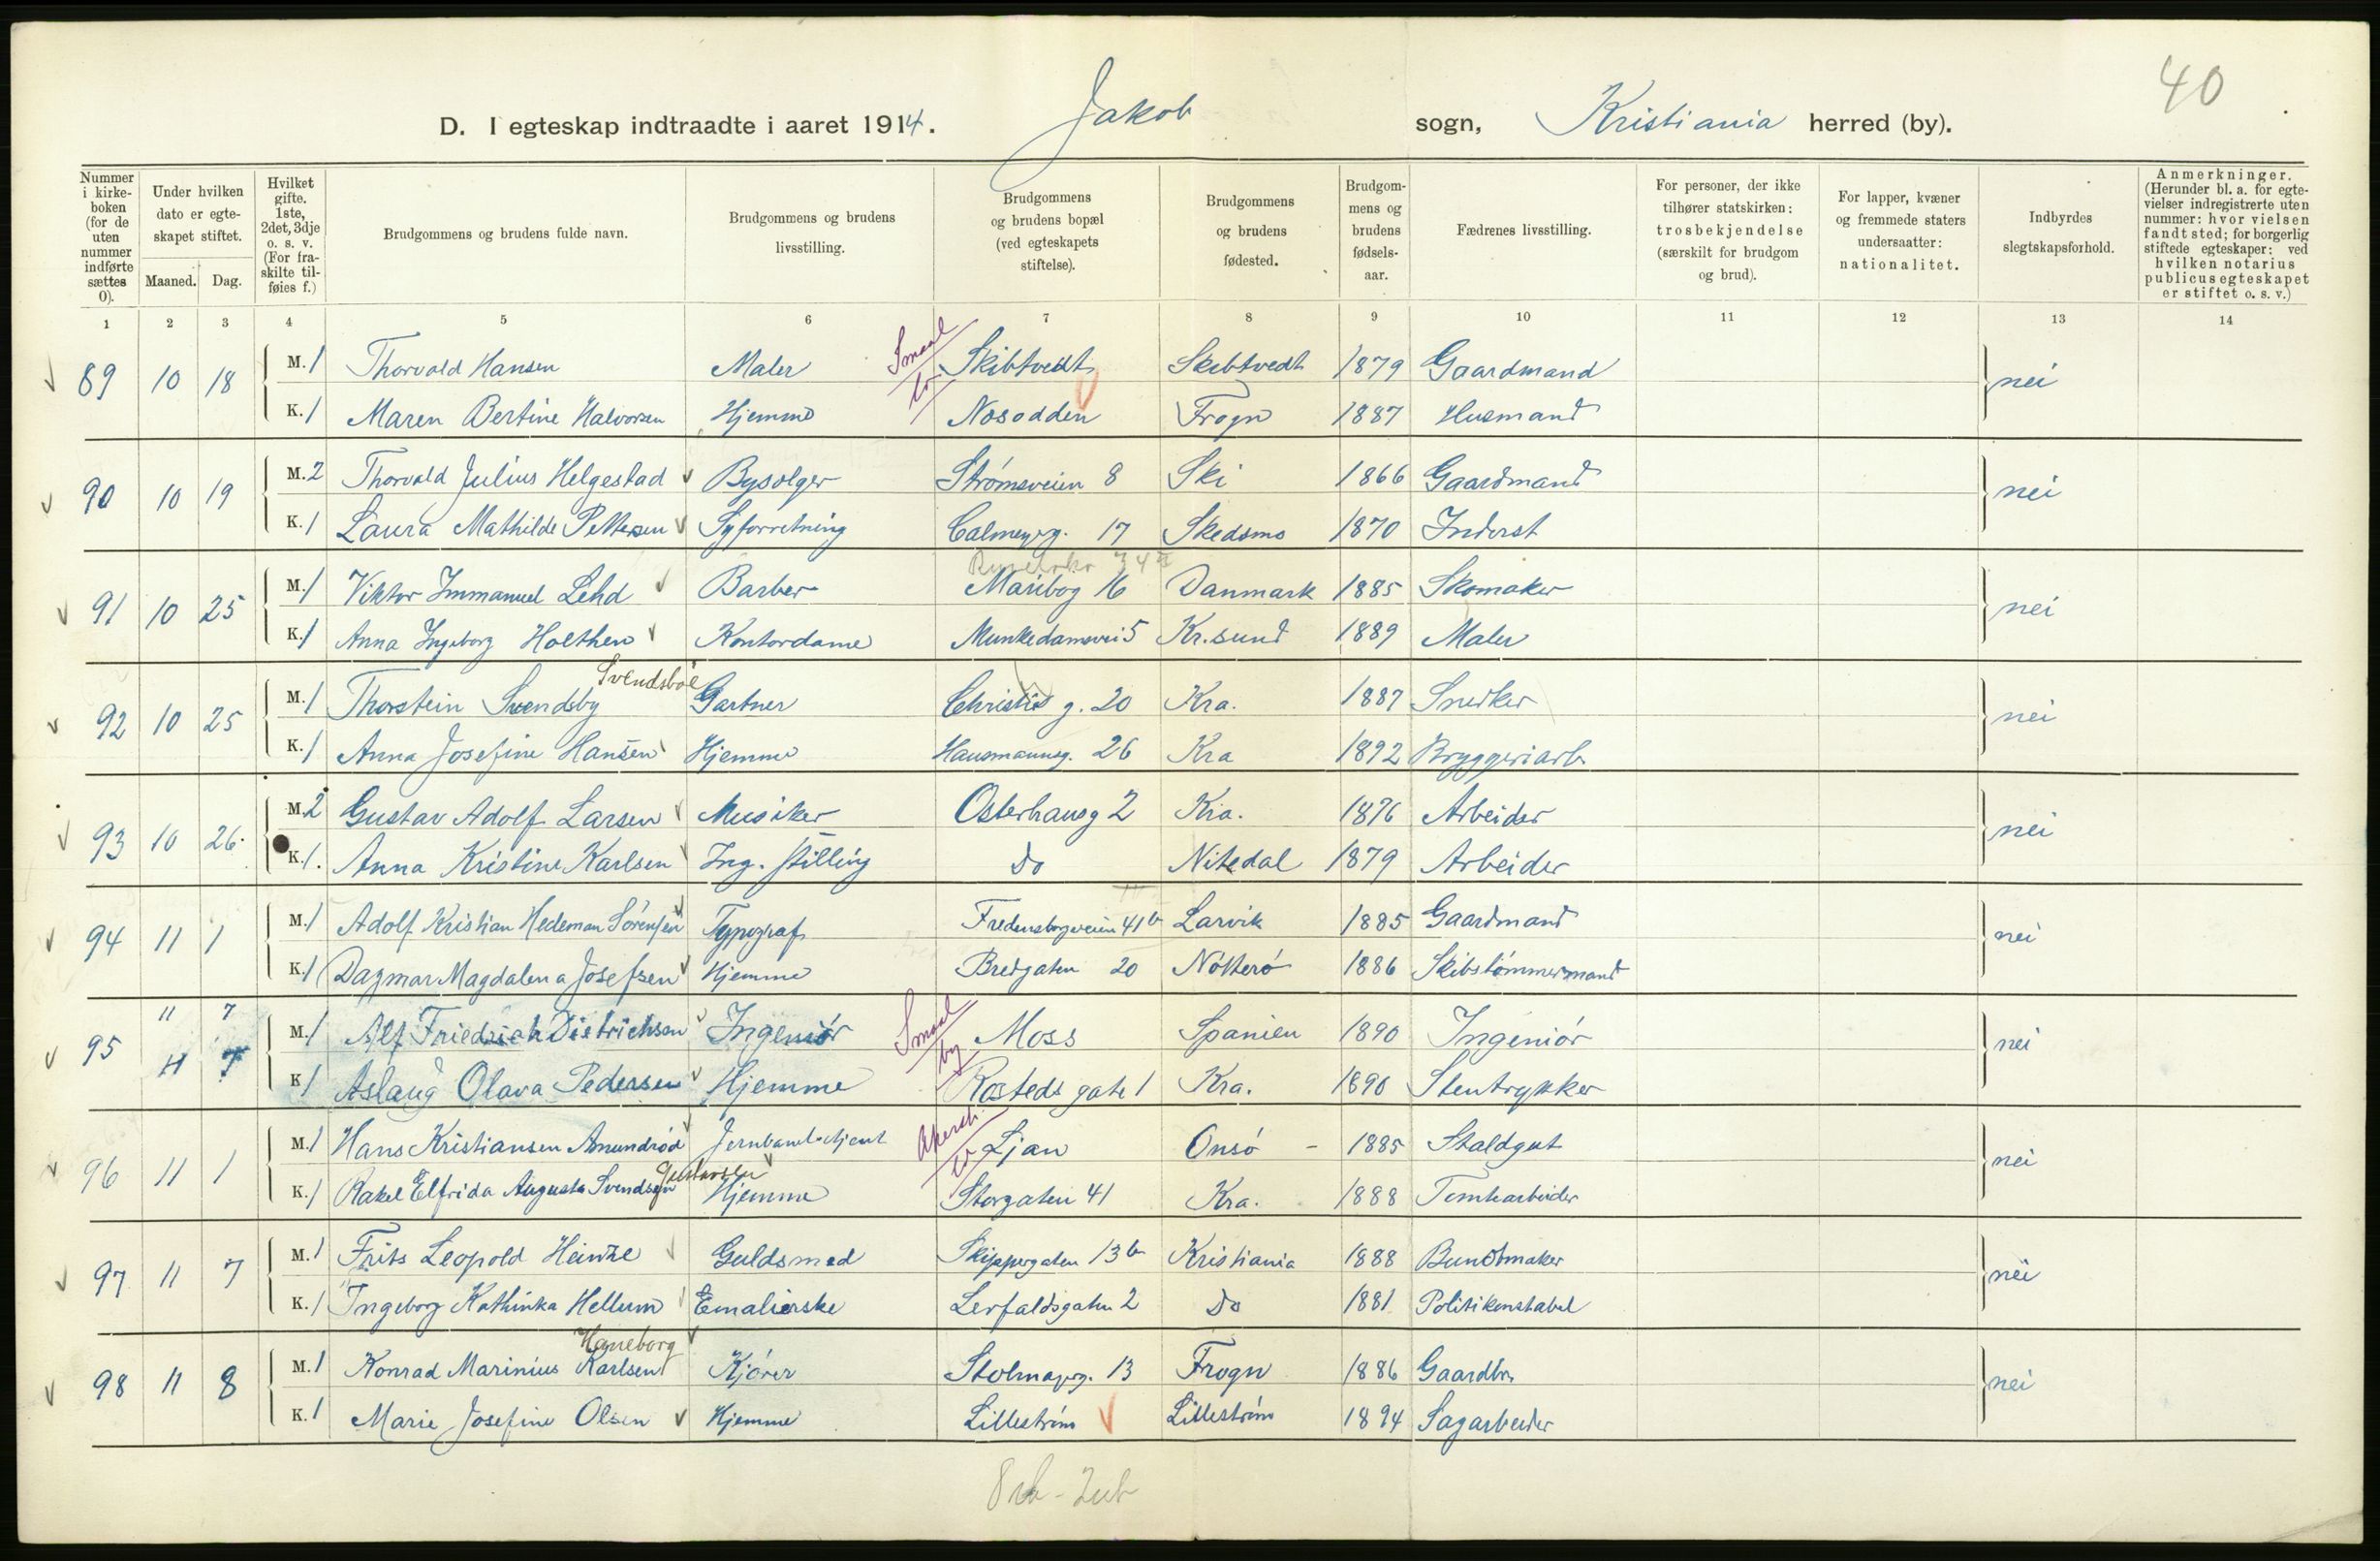 40
D. I egteskap indtraadte i aaret 1914. Jakob sogn, Kristiania herred (by).
Nummer i kirkeboken (for de uten nummer indførte sættes 0).
Under hvilken dato er egteskapet stiftet.
Maaned. Dag.
Hvilket gifte. 1ste, 2det, 3dje o. s. v. (For fraskilte tilføies f.)
Brudgommens og brudens fulde navn.
Brudgommens og brudens livsstilling.
Brudgommens og brudens bopæl (ved egteskapets stiftelse).
Brudgommens og brudens fødested.
Brudgommens og brudens fødselsaar.
Fædrenes livsstilling.
For personer, der ikke tilhører statskirken: trosbekjendelse (særskilt for brudgom og brud).
For lapper, kvæner og fremmede staters undersaatter: nationalitet.
Indbyrdes slegtskapsforhold.
Anmerkninger. (Herunder bl. a. for egtevielser indregistrerte uten nummer: hvor vielsen fandt sted; for borgerlig stiftede egteskaper: ved hvilken notarius publicus egteskapet er stiftet o. s. v.)
1 2 3 4 5 6 7 8 9 10 11 12 13 14
89 10 18 M. 1 Thorvald Hansen Maler Smaal Skibtvedt Skibtvedt 1879 Gaardmand nei
K. 1 Maren Bertine Halvorsen Hjemme Nesodden Frogn 1887 Husmand
90 10 19 M. 2 Thorvald Julius Helgestad Bysælger Strømsveien 8 Ski 1866 Gaardmand nei
K. 1 Laura Mathilde Pettersen Syforretning Calmeyrg. 17 Skedsmo 1870 Inderst
91 10 25 M. 1 Viktor Immanuel Lehd Barber Maribog 16 Danmark 1885 Skomaker nei
K. 1 Anna Ingeborg Holthen Kontordame Munkedamsvei 5 Kr.sund 1889 Maler
Svendsbøe
92 10 25 M. 1 Thorstein Svendsby Gartner Christies g. 20 Kra. 1887 Snedker nei
K. 1 Anna Josefine Hansen Hjemme Hausmannsg. 26 Kra 1892 Bryggeriarb.
93 10 26 M. 2 Gustav Adolf Larsen Musiker Osterhausg 2 Kra. 1876 Arbeider nei
K. 1. Anna Kristine Karlsen Ing. stilling Do Nitedal 1879 Arbeider
94 11 1 M. 1 Adolf Kristian Hedeman Sørensen Typograf Fredensborgveien 41b Larvik 1885 Gaardmand nei
K. 1 Dagmar Magdalena Josefsen Hjemme Bredgaten 20 Nøtterø 1886 Skibstømmermand
11 7
95 11 7 M. 1 Alf Friedrich Dietrichson Ingeniør Smaal by Moss Spanien 1890 Ingeniør nei
K 1 Aslaug Olava Pedersen Hjemme Rosteds gate 1 Kra. 1890 Stentrykker
96 11 1 M. 1 Hans Kristiansen Amundrød Jernbanebetjent Akersh. Ljan Onsø - 1885 Staldgut nei
Gustavsen
K. 1 Rakel Elfrida Augusta Svendsen Hjemme Storgaten 41 Kra. 1888 Tomtearbeider
97 11 7 M. 1 Frits Leopold Heinze Guldsmed Skippergaten 13b Kristiania 1888 Bundtmaker nei
K. 1 Ingeborg Kathinka Hellum Emalierske Lerfaldsgaten 2 Do 1881 Politikonstabel
Haneborg
98 11 8 M. 1 Konrad Marinius Karlsen Kjører Stolmagerg. 13 Frogn 1886 Gaardbr. nei
K. 1 Marie Josefine Olsen Hjemme Lillestrøm Lillestrøm 1894 Sagarbeider